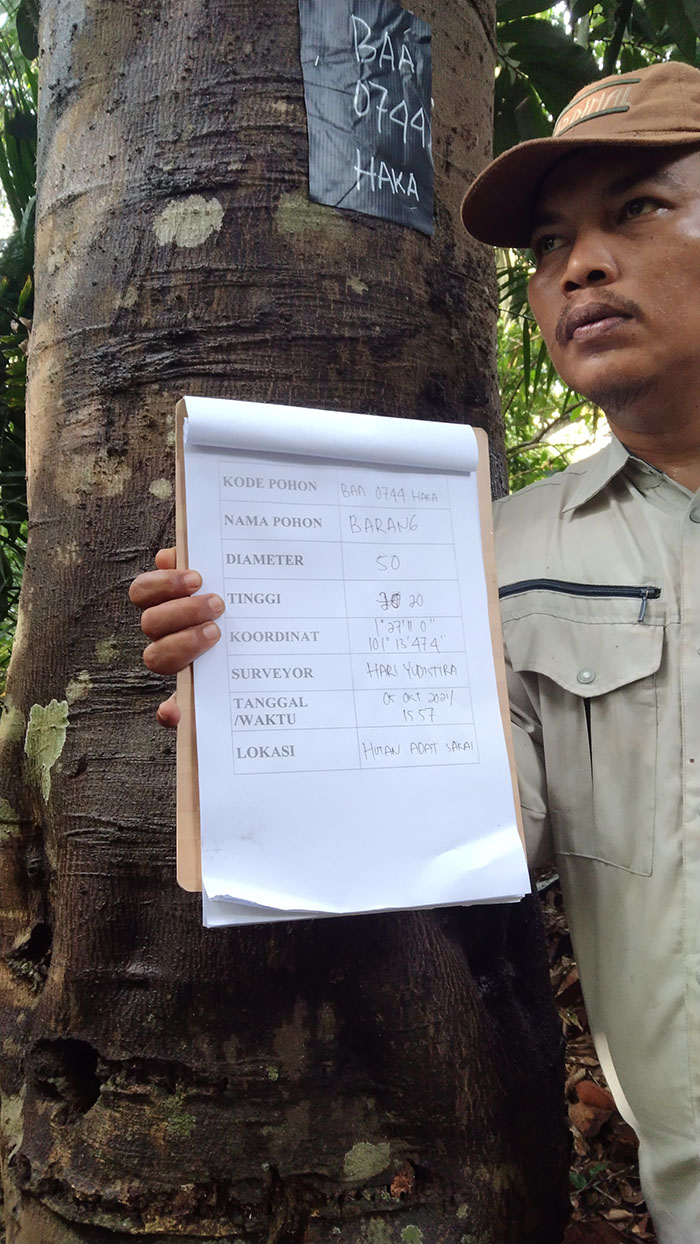 BAA
0744
HAKA
KODE POHON BAA 0744 HAKA
NAMA POHON BARANG
DIAMETER 50
TINGGI 20
KOORDINAT 1° 27' 11 0"
101° 13' 47 4"
SURVEYOR HARI YUDISTIRA
TANGGAL 05 OKT 2021/
/WAKTU 15 57
LOKASI HUTAN ADAT SAKAI